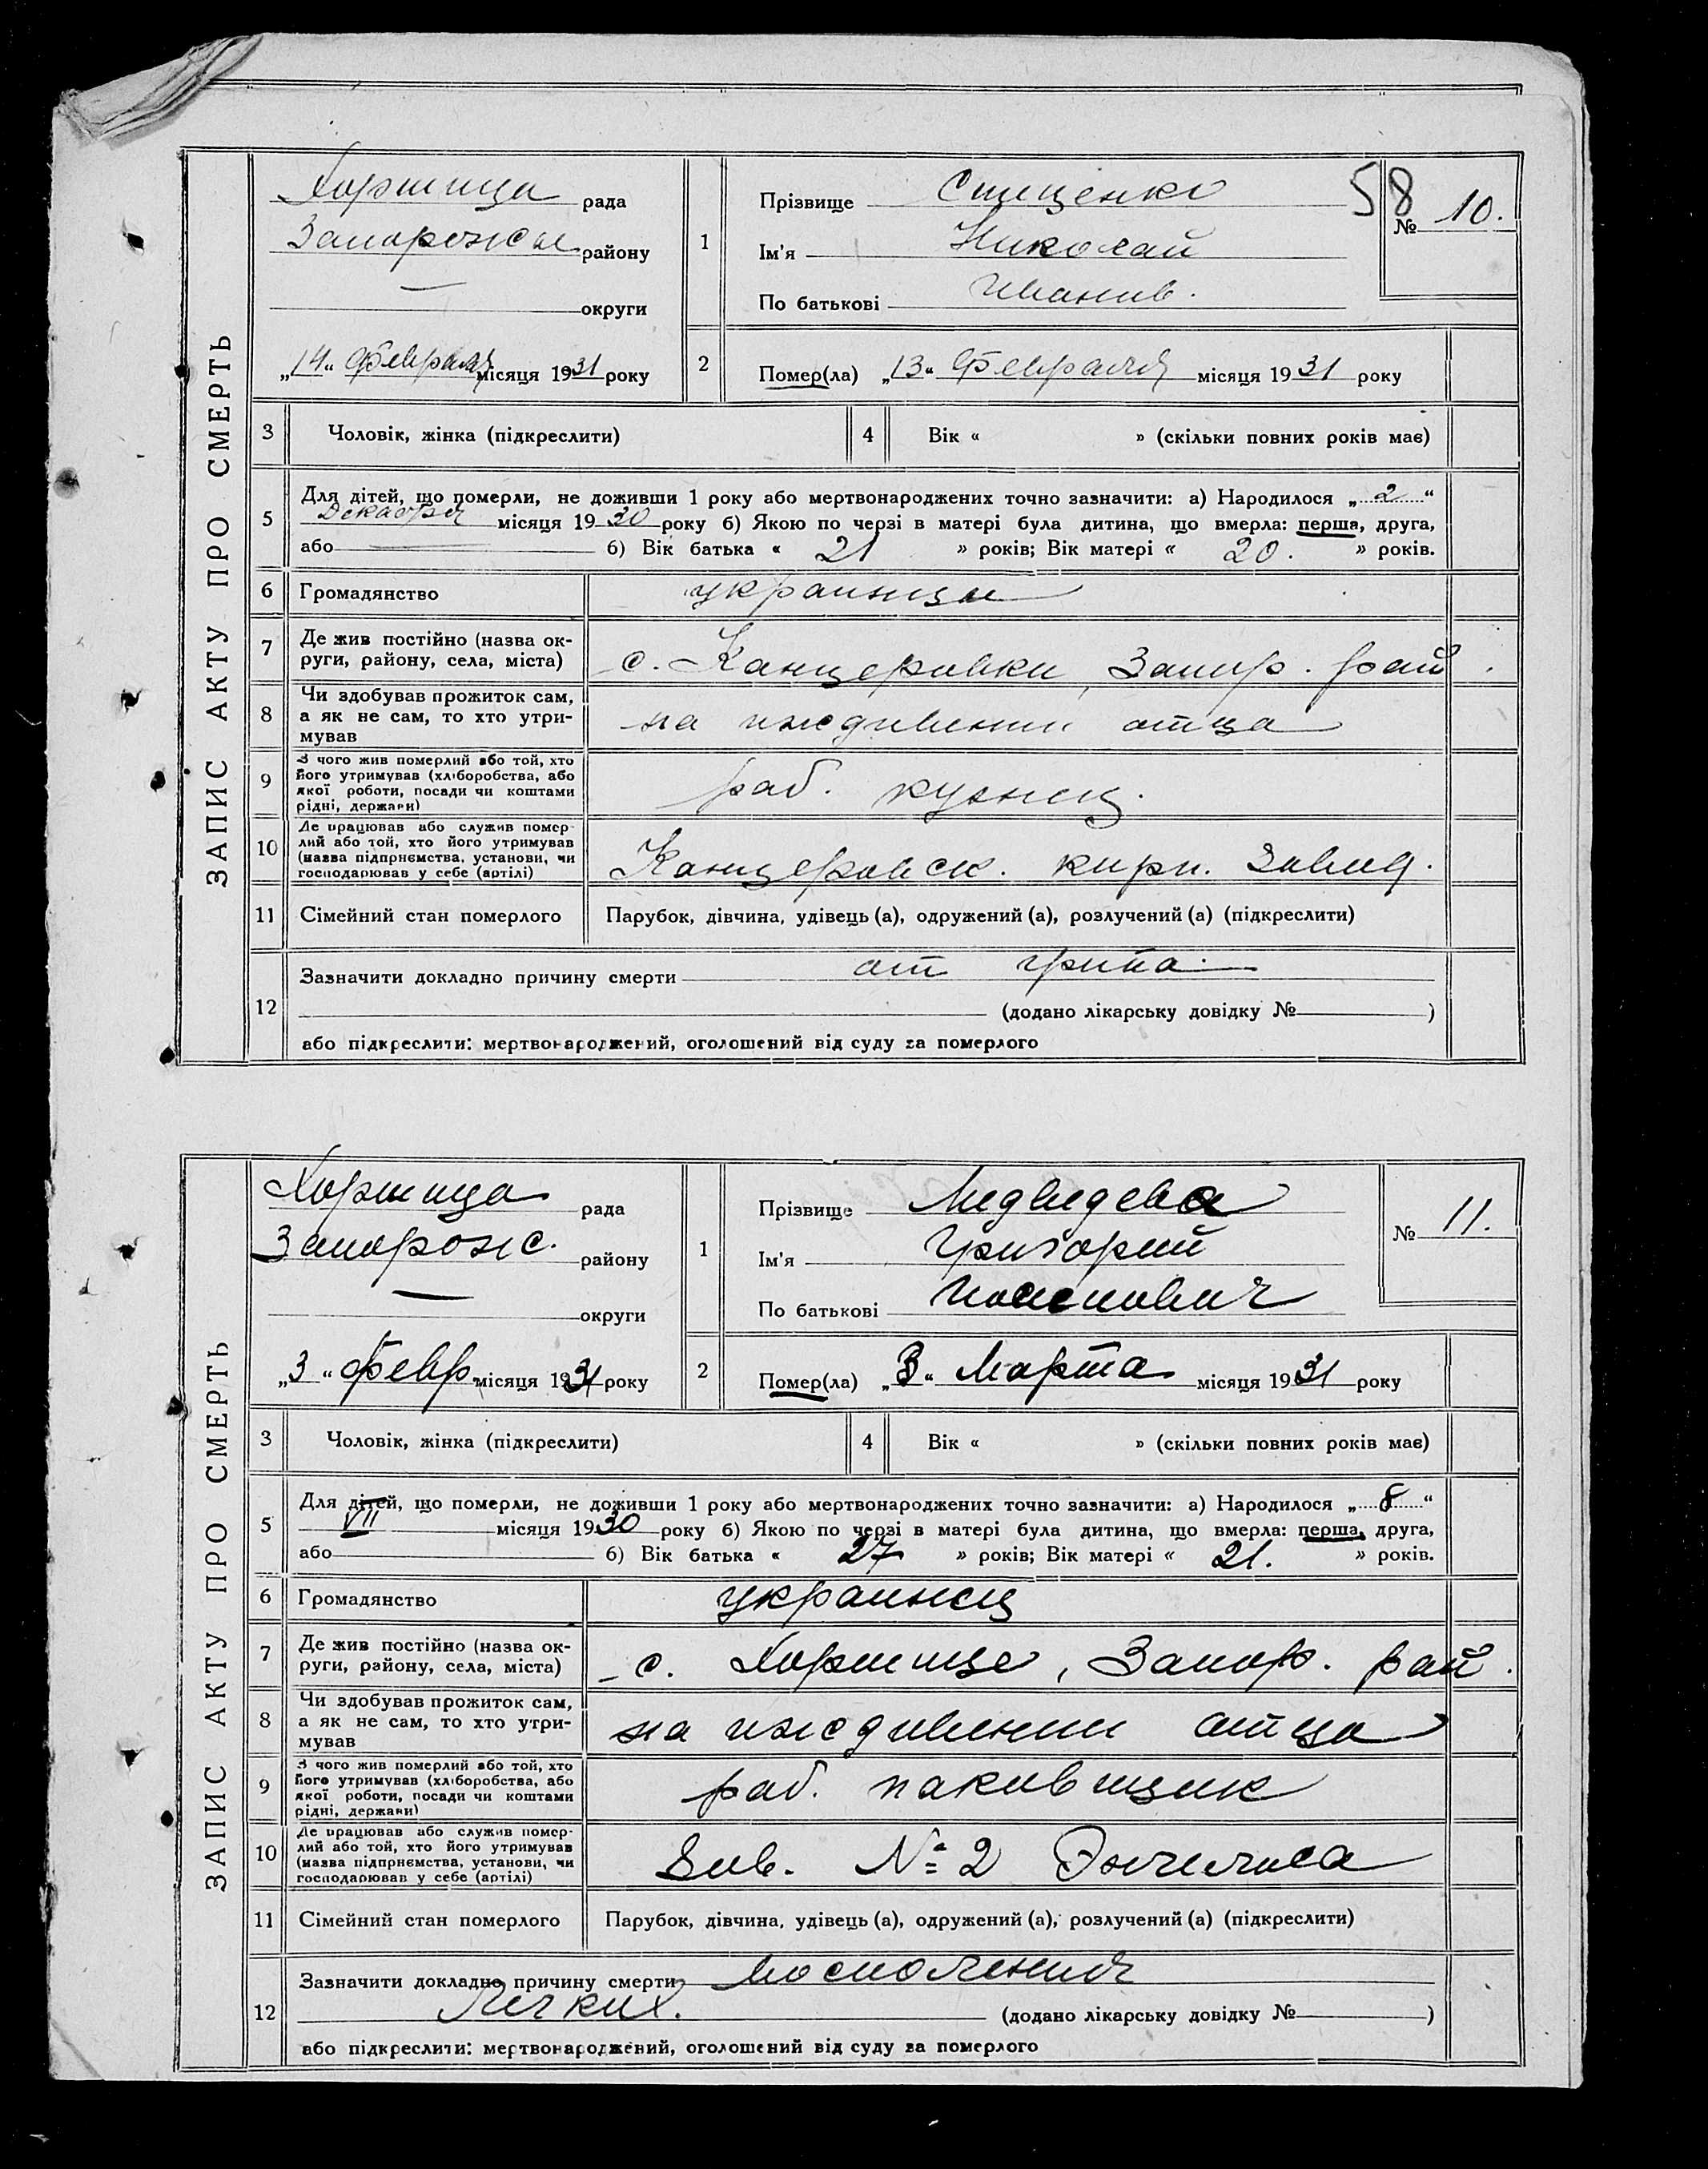 ЗАПИС АКТУ ПРО СМЕРТЬ
58
№ 10.
Хортица рада
Запорожья району
— округи
„14“ февраля місяця 1931 року
1
Прізвище Стищенко
Ім'я Николай
По батькові Иванив.
2
Помер(ла) „13“ Февраля місяця 1931 року
3 Чоловік, жінка (підкреслити) 4 Вік « » (скільки повних років має)
5
Для дітей, що померли, не доживши 1 року або мертвонароджених точно зазначити: а) Народилося „2“
Декабря місяця 1930 року б) Якою по черзі в матері була дитина, що вмерла: перша, друга,
або 6) Вік батька « 21 » років; Вік матері « 20. » років.
6 Громадянство украинцы
7
Де жив постійно (назва ок-
руги, району, села, міста)
с. Канцеровки, Запор. рай.
8
Чи здобував прожиток сам,
а як не сам, то хто утри-
мував
на иждивении отца
9
З чого жив померлий або той, хто
його утримував (хліборобства, або
якої роботи, посади чи коштами
рідні, держави)
раб. кузнец.
10
Де працював або служив помер-
лий або той, хто його утримував
(назва підприємства, установи, чи
господарював у себе (артілі)
Канцеровск. кирп. завод.
11 Сімейний стан померлого Парубок, дівчина, удівець (а), одружений (а), розлучений (а) (підкреслити)
12
Зазначити докладно причину смерти от грипа.
(додано лікарську довідку № )
або підкреслити: мертвонароджений, оголошений від суду за померлого
ЗАПИС АКТУ ПРО СМЕРТЬ
№ 11.
Хортица рада
Запорож. району
— округи
„3“ февр. місяця 1931 року
1
Прізвище Медведева
Ім'я Григорий
По батькові Иосипович
2
Помер(ла) „3“ Марта місяця 1931 року
3 Чоловік, жінка (підкреслити) 4 Вік « » (скільки повних років має)
5
Для дітей, що померли, не доживши 1 року або мертвонароджених точно зазначити: а) Народилося „8“
VII місяця 1930 року б) Якою по черзі в матері була дитина, що вмерла: перша, друга,
або 6) Вік батька « 27 » років; Вік матері « 21. » років.
6 Громадянство украинец
7
Де жив постійно (назва ок-
руги, району, села, міста)
с. Хортице, Запор. рай.
8
Чи здобував прожиток сам,
а як не сам, то хто утри-
мував
на иждивении отца
9
З чого жив померлий або той, хто
його утримував (хліборобства, або
якої роботи, посади чи коштами
рідні, держави)
раб. паковщик
10
Де працював або служив помер-
лий або той, хто його утримував
(назва підприємства, установи, чи
господарював у себе (артілі)
Зав. № 2 Энгельса
11 Сімейний стан померлого Парубок, дівчина, удівець (а), одружений (а), розлучений (а) (підкреслити)
12
Зазначити докладно причину смерти восполения
Легких.
(додано лікарську довідку № )
або підкреслити: мертвонароджений, оголошений від суду за померлого